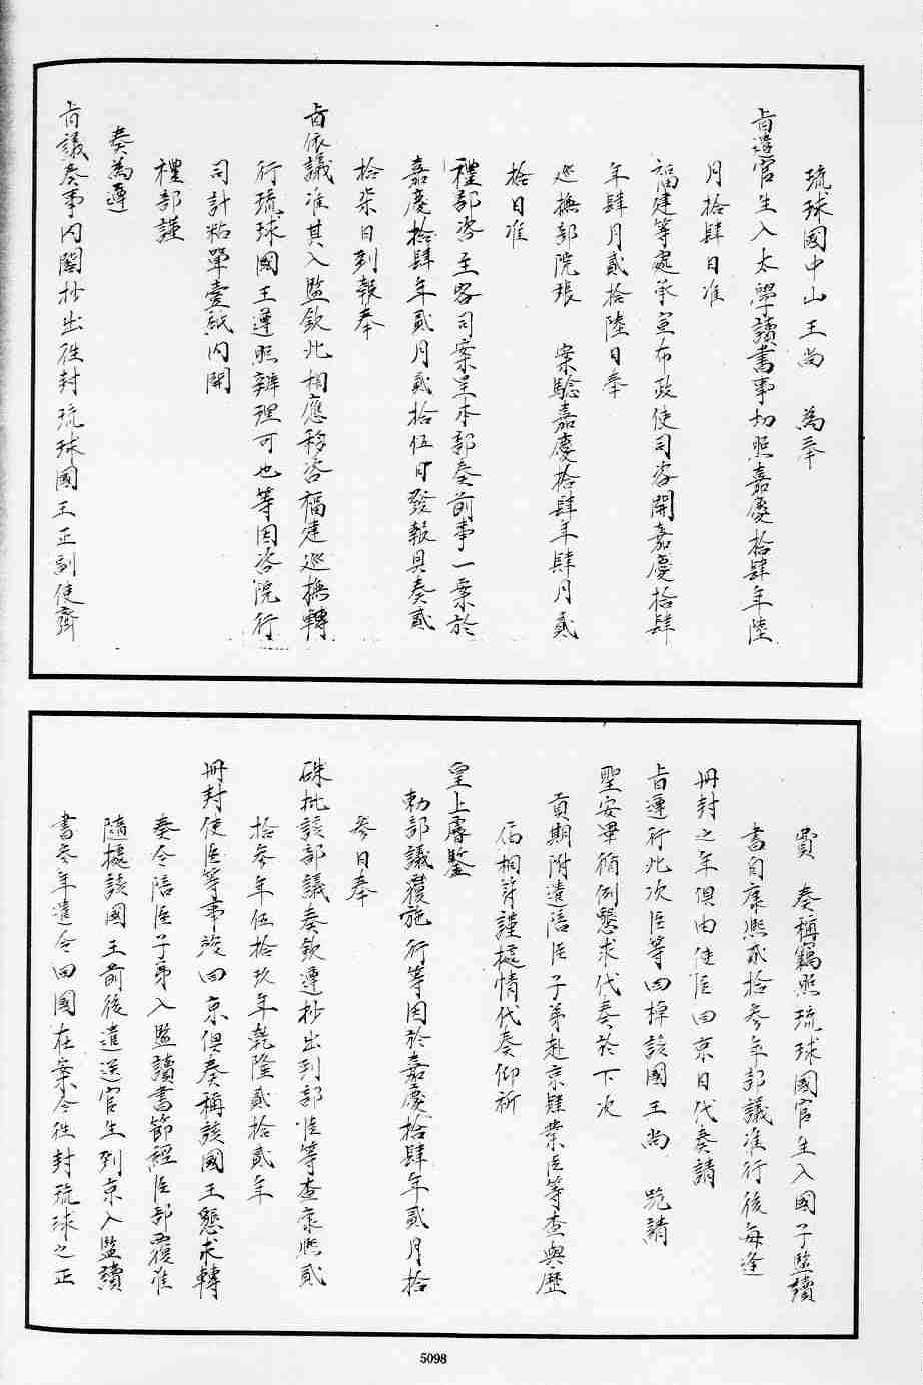 琉球國中山王尚　為奉
旨遣官生入太學讀書事切照嘉慶拾肆年陸
月拾肆日准
福建等處承宣布政使司咨開嘉慶拾肆
年肆月貳拾陸日奉
巡撫部院張　案驗嘉慶拾肆年肆月貳
拾日准
禮部咨主客司案呈本部奏前事一案於
嘉慶拾肆年貳月貳拾伍日發報具奏貳
拾柒日到報奉
旨依議准其入監欽此相應移咨福建巡撫轉
行琉球國王遵照辦理可也等因咨院行
司計粘單壹紙內開
禮部謹
奏為遵
旨議奏事內閣抄出徃封琉球國王正副使齊
費　奏稱竊照琉球國官生入國子監讀
書自康熙貳拾參年部議准行後每逢
冊封之年俱由使臣回京日代奏請
旨遵行此次臣等回棹該國王尚　跪請
聖安畢循例懇求代奏於下次
貢期附遣陪臣子弟赴京肄業臣等查與歷
屆相符謹據情代奏仰祈
皇上睿鑒
勅部議覆施行等因於嘉慶拾肆年貳月拾
參日奉
硃批該部議奏欽遵抄出到部臣等查康熙貳
拾參年伍拾玖年乾隆貳拾貳年
冊封使臣等事竣回京俱奏稱該國王懇求轉
奏令陪臣子弟入監讀書節經臣部覆准
隨據該國王前後遣送官生到京入監讀
書參年遣令回國在案今徃封琉球之正
5098